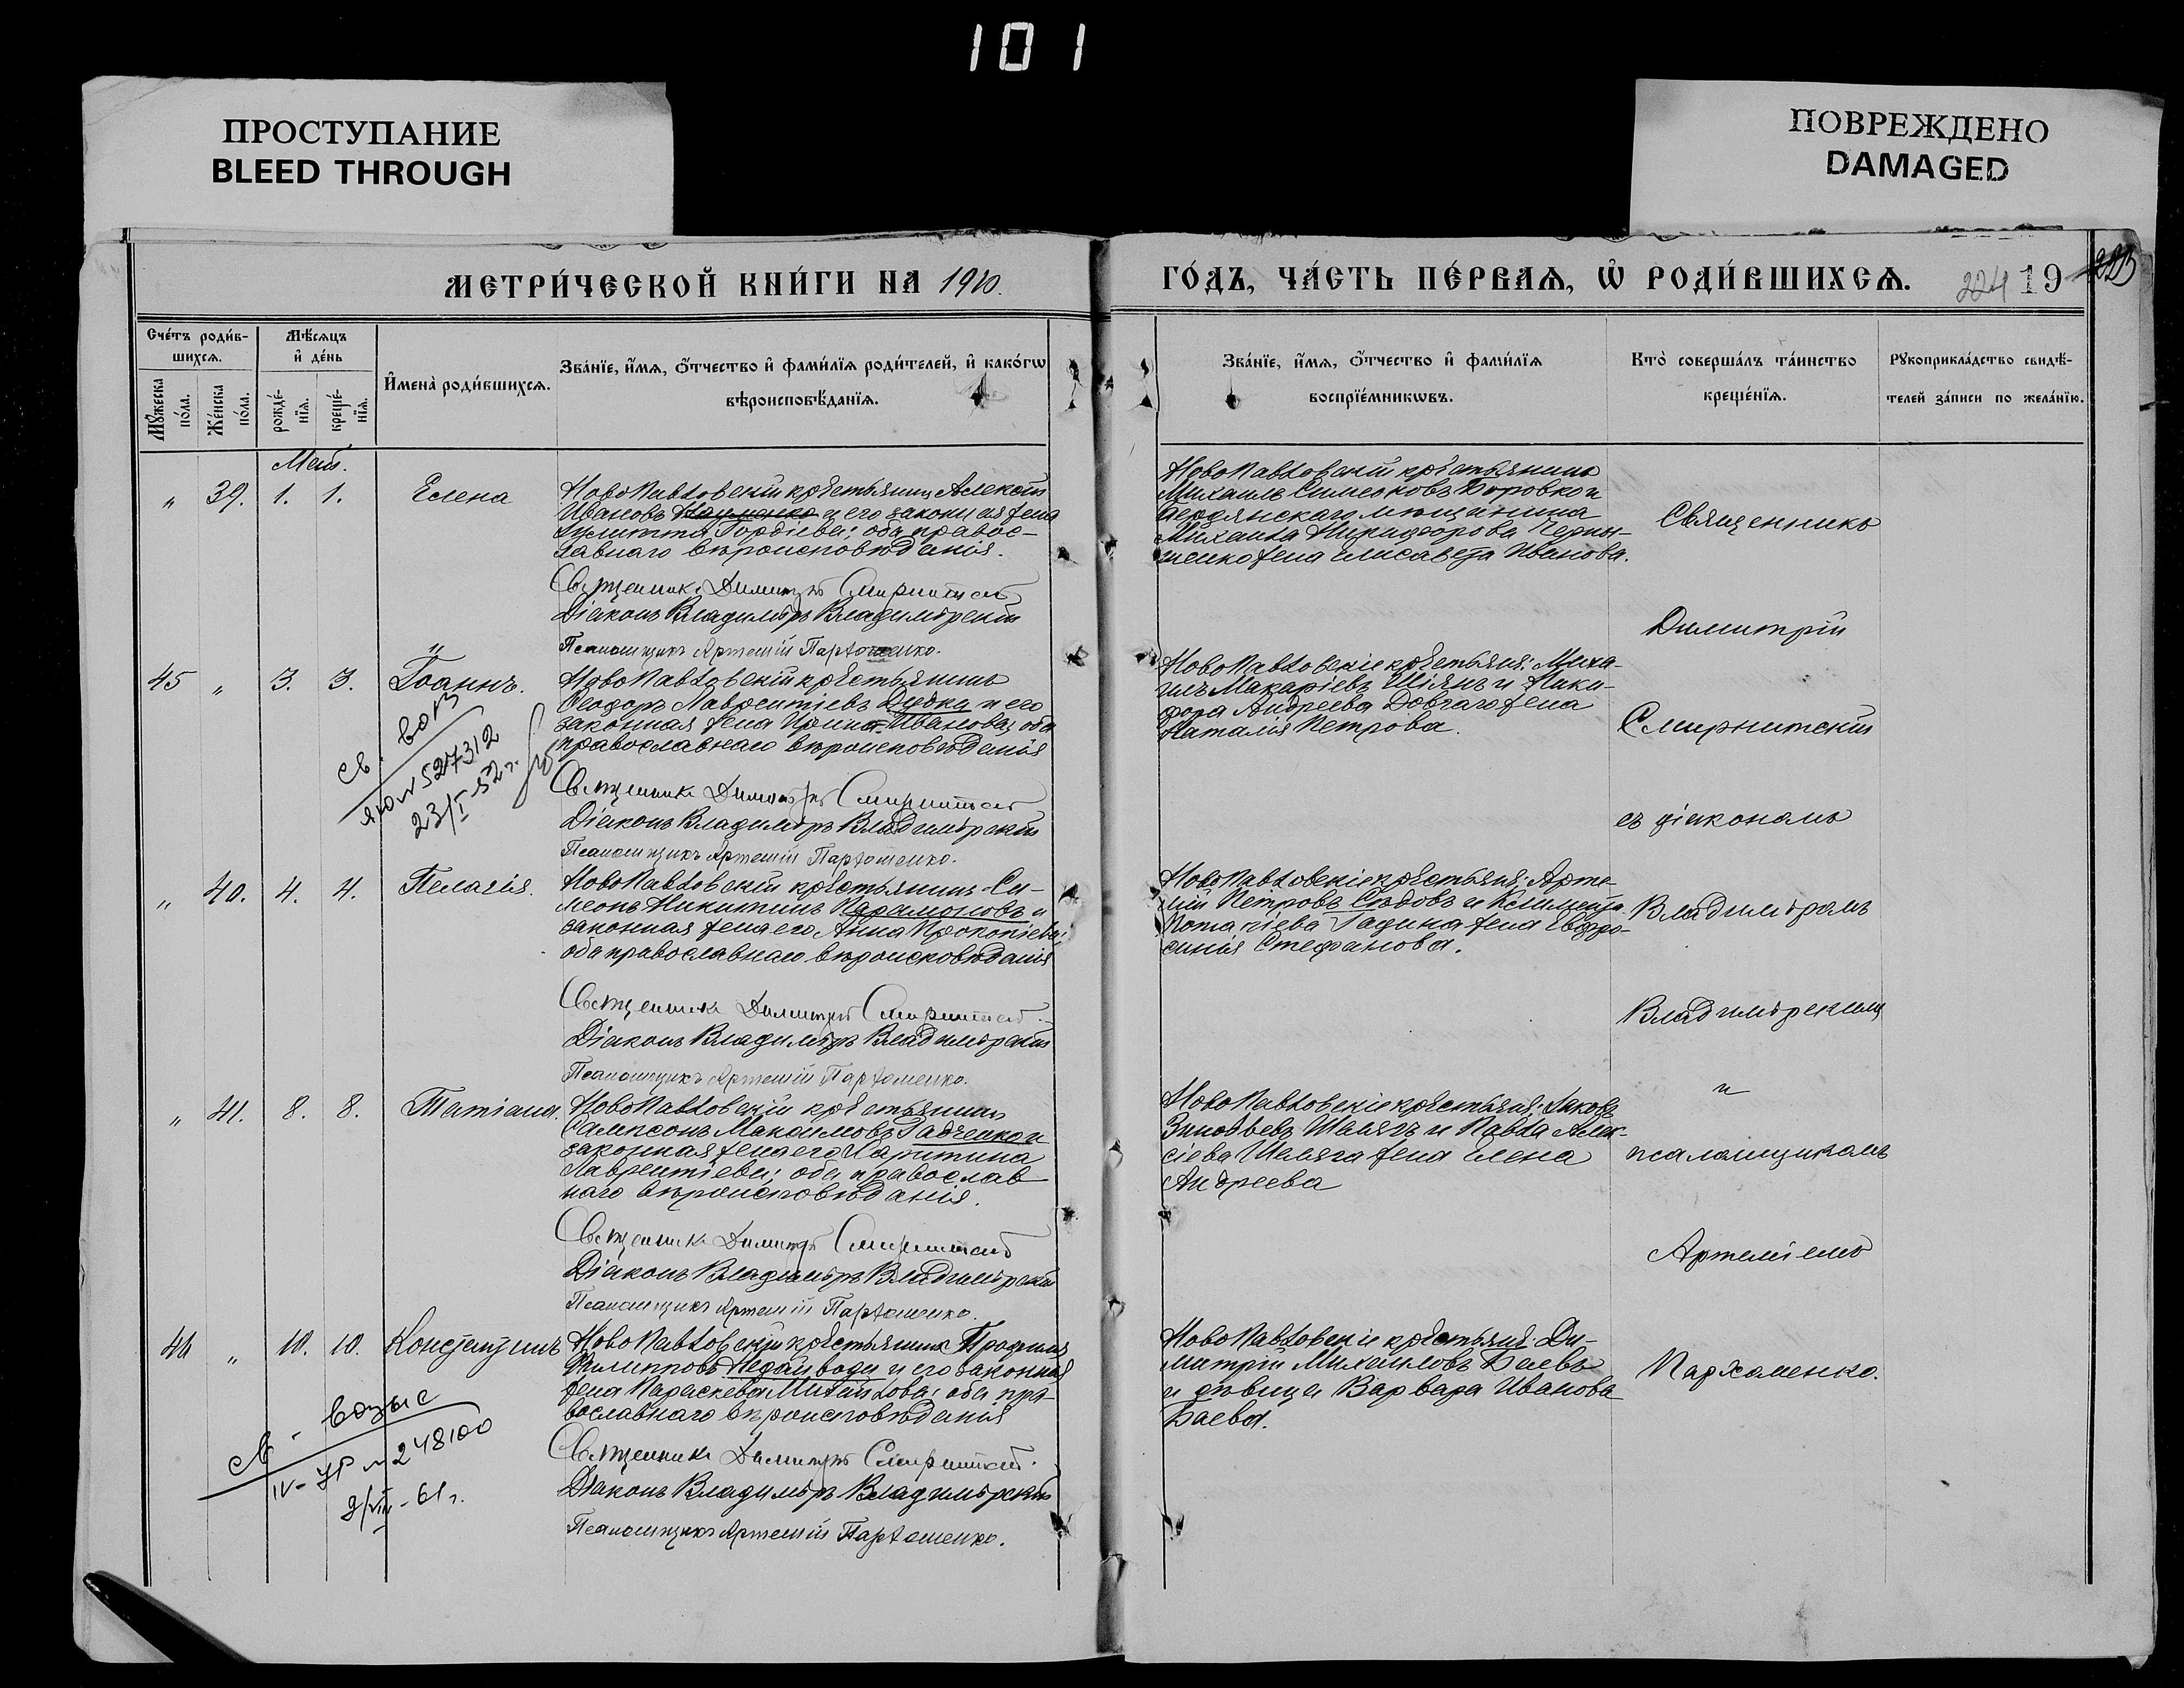 101
ПРОСТУПАНИЕ
BLEED THROUGH
ПОВРЕЖДЕНО
DAMAGED
МЕТРИ́ЧЕСКОЙ КНИ́ГИ НА 1910.
ГО́ДЪ, ЧА́СТЬ ПЕ́РВАѦ, Ѿ РОДИ́ВШИХСѦ. 224 19
Сче́тъ роди́в-
шихсѧ.
Мѣ́сѧцъ
и҆ де́нь
Мꙋ́жеска
по́ла.
Же́нска
по́ла.
рожде́-
нїѧ.
креще́-
нїѧ.
И҆мена̀ роди́вшихсѧ.
Зва́нїе, и҆́мѧ, ѻ҆́тчество и҆ фами́лїѧ роди́телей, и҆ како́гѡ
вѣроисповѣ́данїѧ.
Зва́нїе, и҆́мѧ, ѻ҆́тчество и҆ фами́лїѧ
воспрїе́мникѡвъ.
Кто̀ соверша́лъ та́инство
креще́нїѧ.
Рꙋкоприкла́дство свидѣ́-
телей за́писи по жела́нїю.
Май.
„ 39. 1. 1. Елена
НовоПавловскій крестьянинъ Алексѣй
Ивановъ Науменко и его законная жена
Гордіева; оба правос-
лавнаго вѣроисповѣданія.
Священникъ Димитрій Смирнитскій
Діаконъ Владиміръ Владимірскій
Псаломщикъ Артемій Пархоменко.
НовоПавловскій крестьянинъ
Михаилъ Симеоновъ Боровко и
бердянскаго мѣщанина
Михаила Никифорова Черны-
шенко жена Елисавета Иванова.
45 „ 3. 3. Іоаннъ.
НовоПавловскій крестьянинъ
Ѳеодоръ Лаврентіевъ Дудка и его
законная жена Ирина Иванова; оба
православнаго вѣроисповѣданія
Священникъ Димитрій Смирнитскій
Діаконъ Владиміръ Владимірскій
Псаломщикъ Артемій Пархоменко.
НовоПавловскіе крестьяне: Миха-
илъ Макаріевъ Шіянъ и Ники-
фора Андреева Довгаго жена
Наталія Петрова.
св.
№ 527312
23/I-52 г.
„ 40. 4. 4. Пелагія.
НовоПавловскій крестьянинъ Си-
меонъ Никитинъ Парамоновъ и
законная жена его Анна Прокопіева;
оба православнаго вѣроисповѣданія
Священникъ Димитрій Смирнитскій
Діаконъ Владиміръ Владимірскій
Псаломщикъ Артемій Пархоменко.
НовоПавловскіе крестьяне: Арте-
мій Петровъ Сѣдовъ и Климента
Потапіева Гадина жена Евфро-
синія Стефанова.
„ 41. 8. 8. Татіана.
НовоПавловскій крестьянинъ
Сампсонъ Максимовъ Гадченко и
законная жена его Харитина
Лаврентіева; оба православ-
наго вѣроисповѣданія.
Священникъ Димитрій Смирнитскій
Діаконъ Владиміръ Владимірскій
Псаломщикъ Артемій Пархоменко.
НовоПавловскіе крестьяне: Іаковъ
Зиновьевъ Шелягъ и Павла Алек-
сіева Шеляга жена Елена
Андреева
46 „ 10. 10. Константинъ
НовоПавловскій крестьянинъ Трофимъ
Филипповъ Недайвода и его законная
жена Параскева Михайлова; оба пра-
вославнаго вѣроисповѣданія
Священникъ Димитрій Смирнитскій.
Діаконъ Владиміръ Владимірскій
Псаломщикъ Артемій Пархоменко.
НовоПавловскіе крестьяне: Ди-
митрій Михаиловъ Баевъ
и дѣвица Варвара Иванова
Баева.
св -
IV-УР № 248100
61 г.
Священникъ
Димитрій
Смирнитскій
съ діакономъ
Владиміромъ
Владимірскимъ
и
псаломщикомъ
Артеміемъ
Пархоменко.